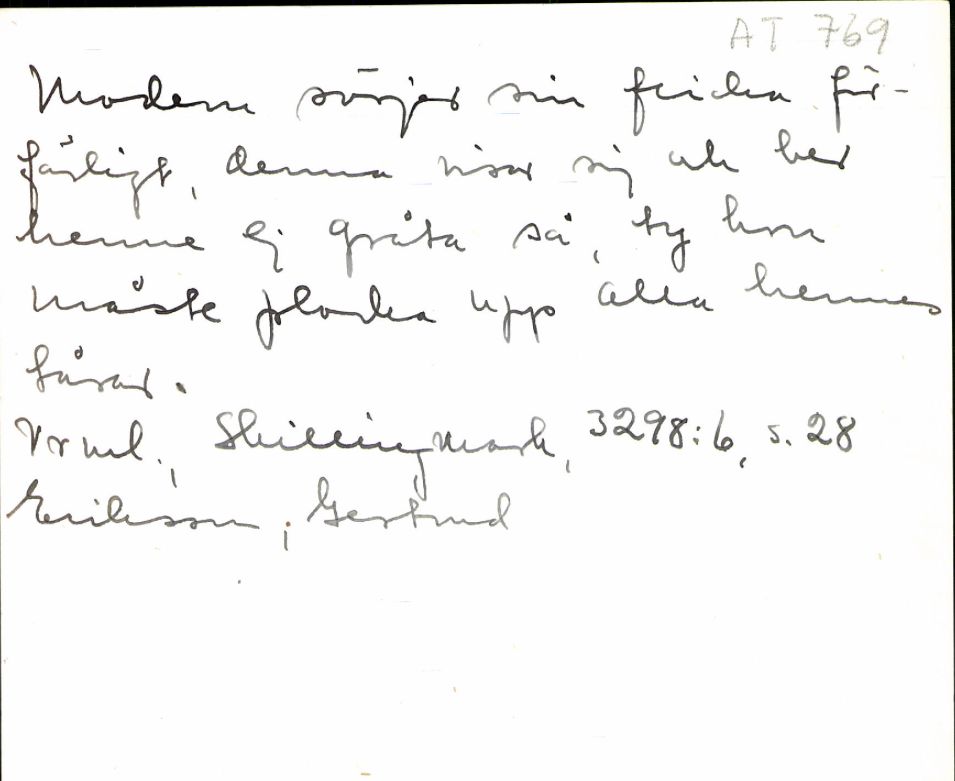 AT 769
Modern sörjer sin flicka för-
färligt, denna visar sig och ber
henne ej gråta så, ty hon
måste plocka upp alla hennes
tårar.
Vrml., Skillingmark, 3298:6, s. 28
Eriksson, Gertrud